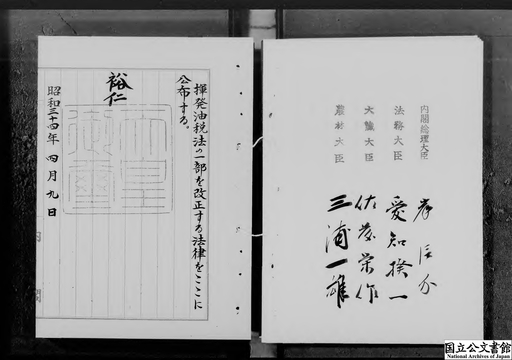 内閣総理大臣
岸信介
法務大臣
愛知揆一
大藏大臣
佐藤栄作
農林大臣
三浦一雄
揮発油税法の一部を改正する法律をここに
公布する。
裕仁
天皇
御璽
昭和三十四年四月九日
内閣
国立公文書館
National Archives of Japan